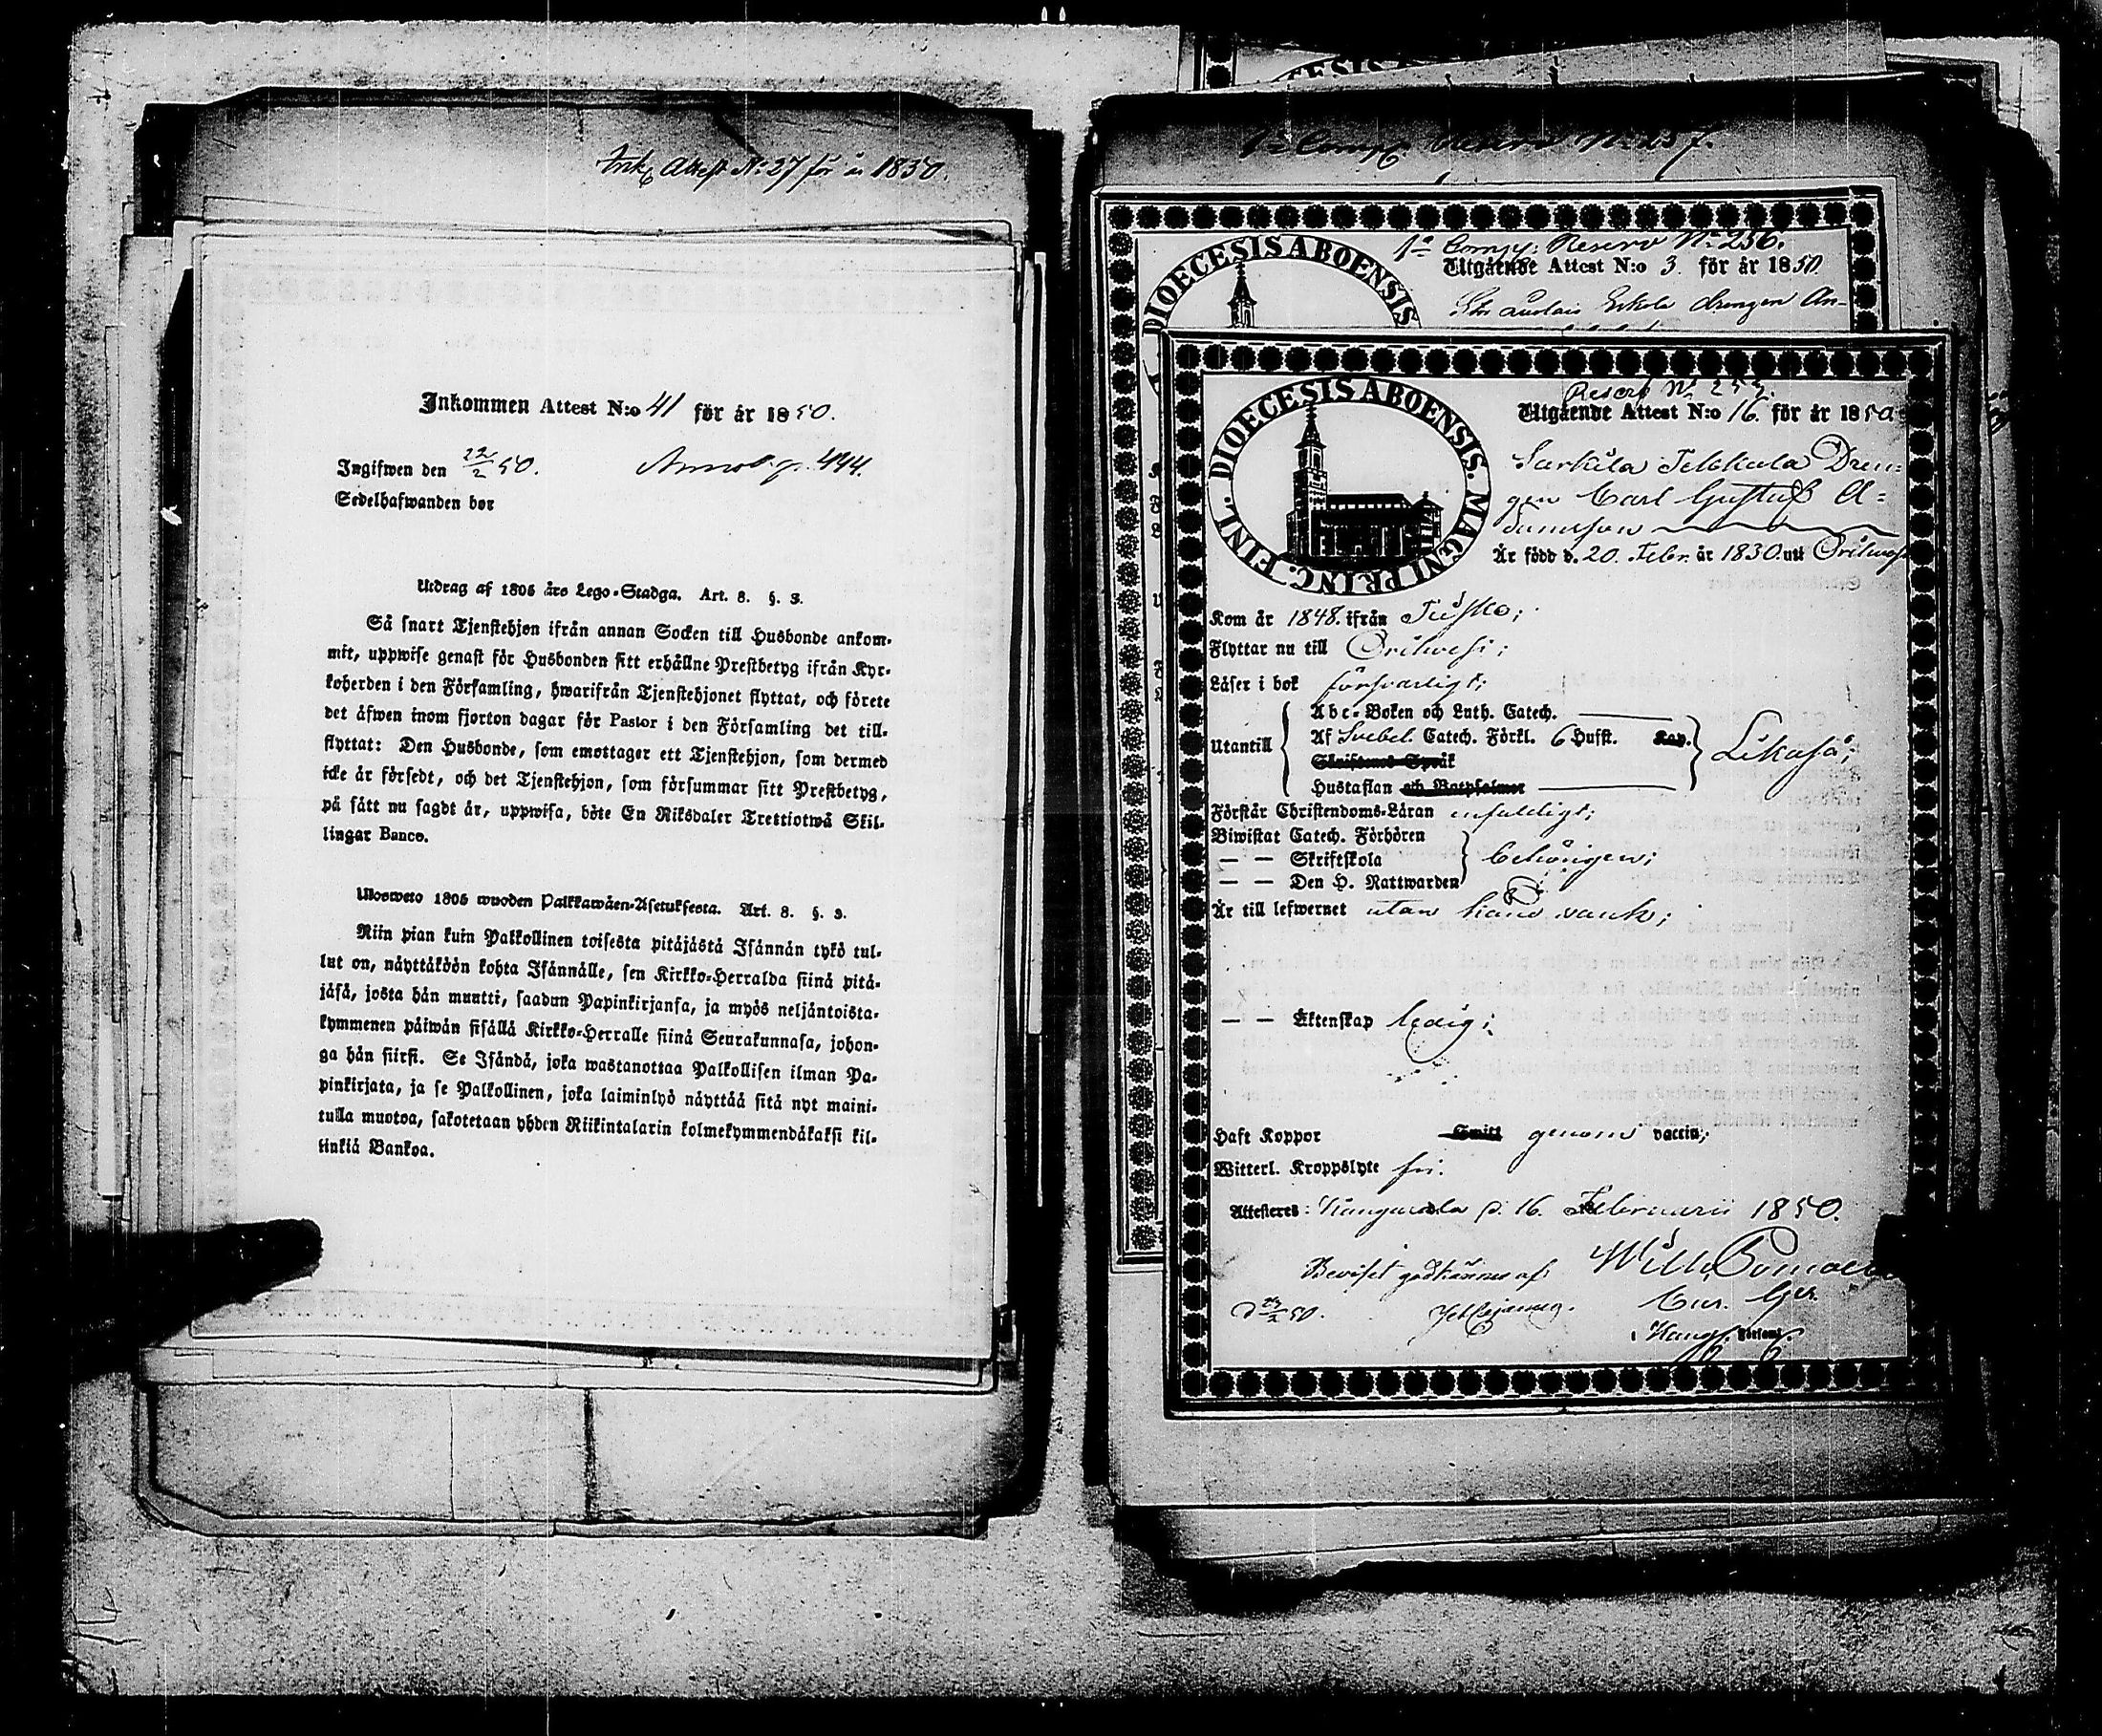 Ink. Attest N: 27 för år 1850.
Inkommen Attest N:o 41 för år 1850.
Ingifwen den 22/2 50. Annot. p. 444.
Sedelhafwanden bor
Utdrag af 1805 års Lego-Stadga. Art. 8. §. 3.
Så snart Tjenstehjon ifrån annan Socken till Husbonde ankom-
mit, uppwise genast för Husbonden sitt erhållne Prestbetyg ifrån Kyr-
koherden i den Församling, hwarifrån Tjenstehjonet flyttat, och förete
det äfwen inom fjorton dagar för Pastor i den Församling det till-
flyttat: Den Husbonde, som emottager ett Tjenstehjon, som dermed
icke är försedt, och det Tjenstehjon, som försummar sitt Prestbetyg,
på sätt nu sagdt är, uppwisa, böte En Riksdaler Trettiotwå Skil-
lingar Banco.
Ulosweto 1805 wuoden Palkkawäen-Asetuksesta. Art. 8. §. 3.
Niin pian kuin Palkollinen toisesta pitäjästä Isännän tykö tul-
lut on, näyttäköön kohta Isännälle, sen Kirkko-Herralda siinä pitä-
jäsä, josta hän muutti, saadun Papinkirjansa, ja myös neljäntoista-
kymmenen päiwän sisällä Kirkko-Herralle siinä Seurakunnasa, johon-
ga hän siirsi. Se Isändä, joka wastanottaa Palkollisen ilman Pa-
pinkirjata, ja se Palkollinen, joka laiminlyö näyttää sitä nyt maini-
tulla muotoa, sakotetaan yhden Riikintalarin kolmekymmendäkaksi kil-
linkiä Bankoa.
Reserv No 257.
1a Comp: Reserv No 256.
Utgående Attest N:o 3. för år 1850.
drengen An-
DIOECESIS ABOENSIS
Reserv No
Utgående Attest N:o 16. för år 1850
DIOECESIS ABOENSIS. MAGNI PRINC. FINL.
Sarkila Dren-
gen Carl Gustaf A-
damsson
Är född d. 20. Febr. år 1830. uti Orihwesi
Kom år 1848. ifrån
Flyttar nu till Orihwesi;
Läser i bok försvarligt;
Abc-Boken och Luth. Catech.
Utantill Af Svebel. Catech. Förkl. 6 Hufst. Kap. Likaså;
Skriftenes Språk
Hustaflan och Botpsalmer
Förstår Christendoms-Läran enfaldigt;
Biwistat Catech. Förhören
— — Skriftskola behörigen;
— — Den H. Nattwarden
Är till lefwernet utan
— — Äktenskap ledig;
Haft Koppor Smitt genom vaccin;
Witterl. Kroppslyte fri.
Attesteres: Kangasala d. 16. Februarii 1850.
Beviset godkännes af:
50.
Församl.